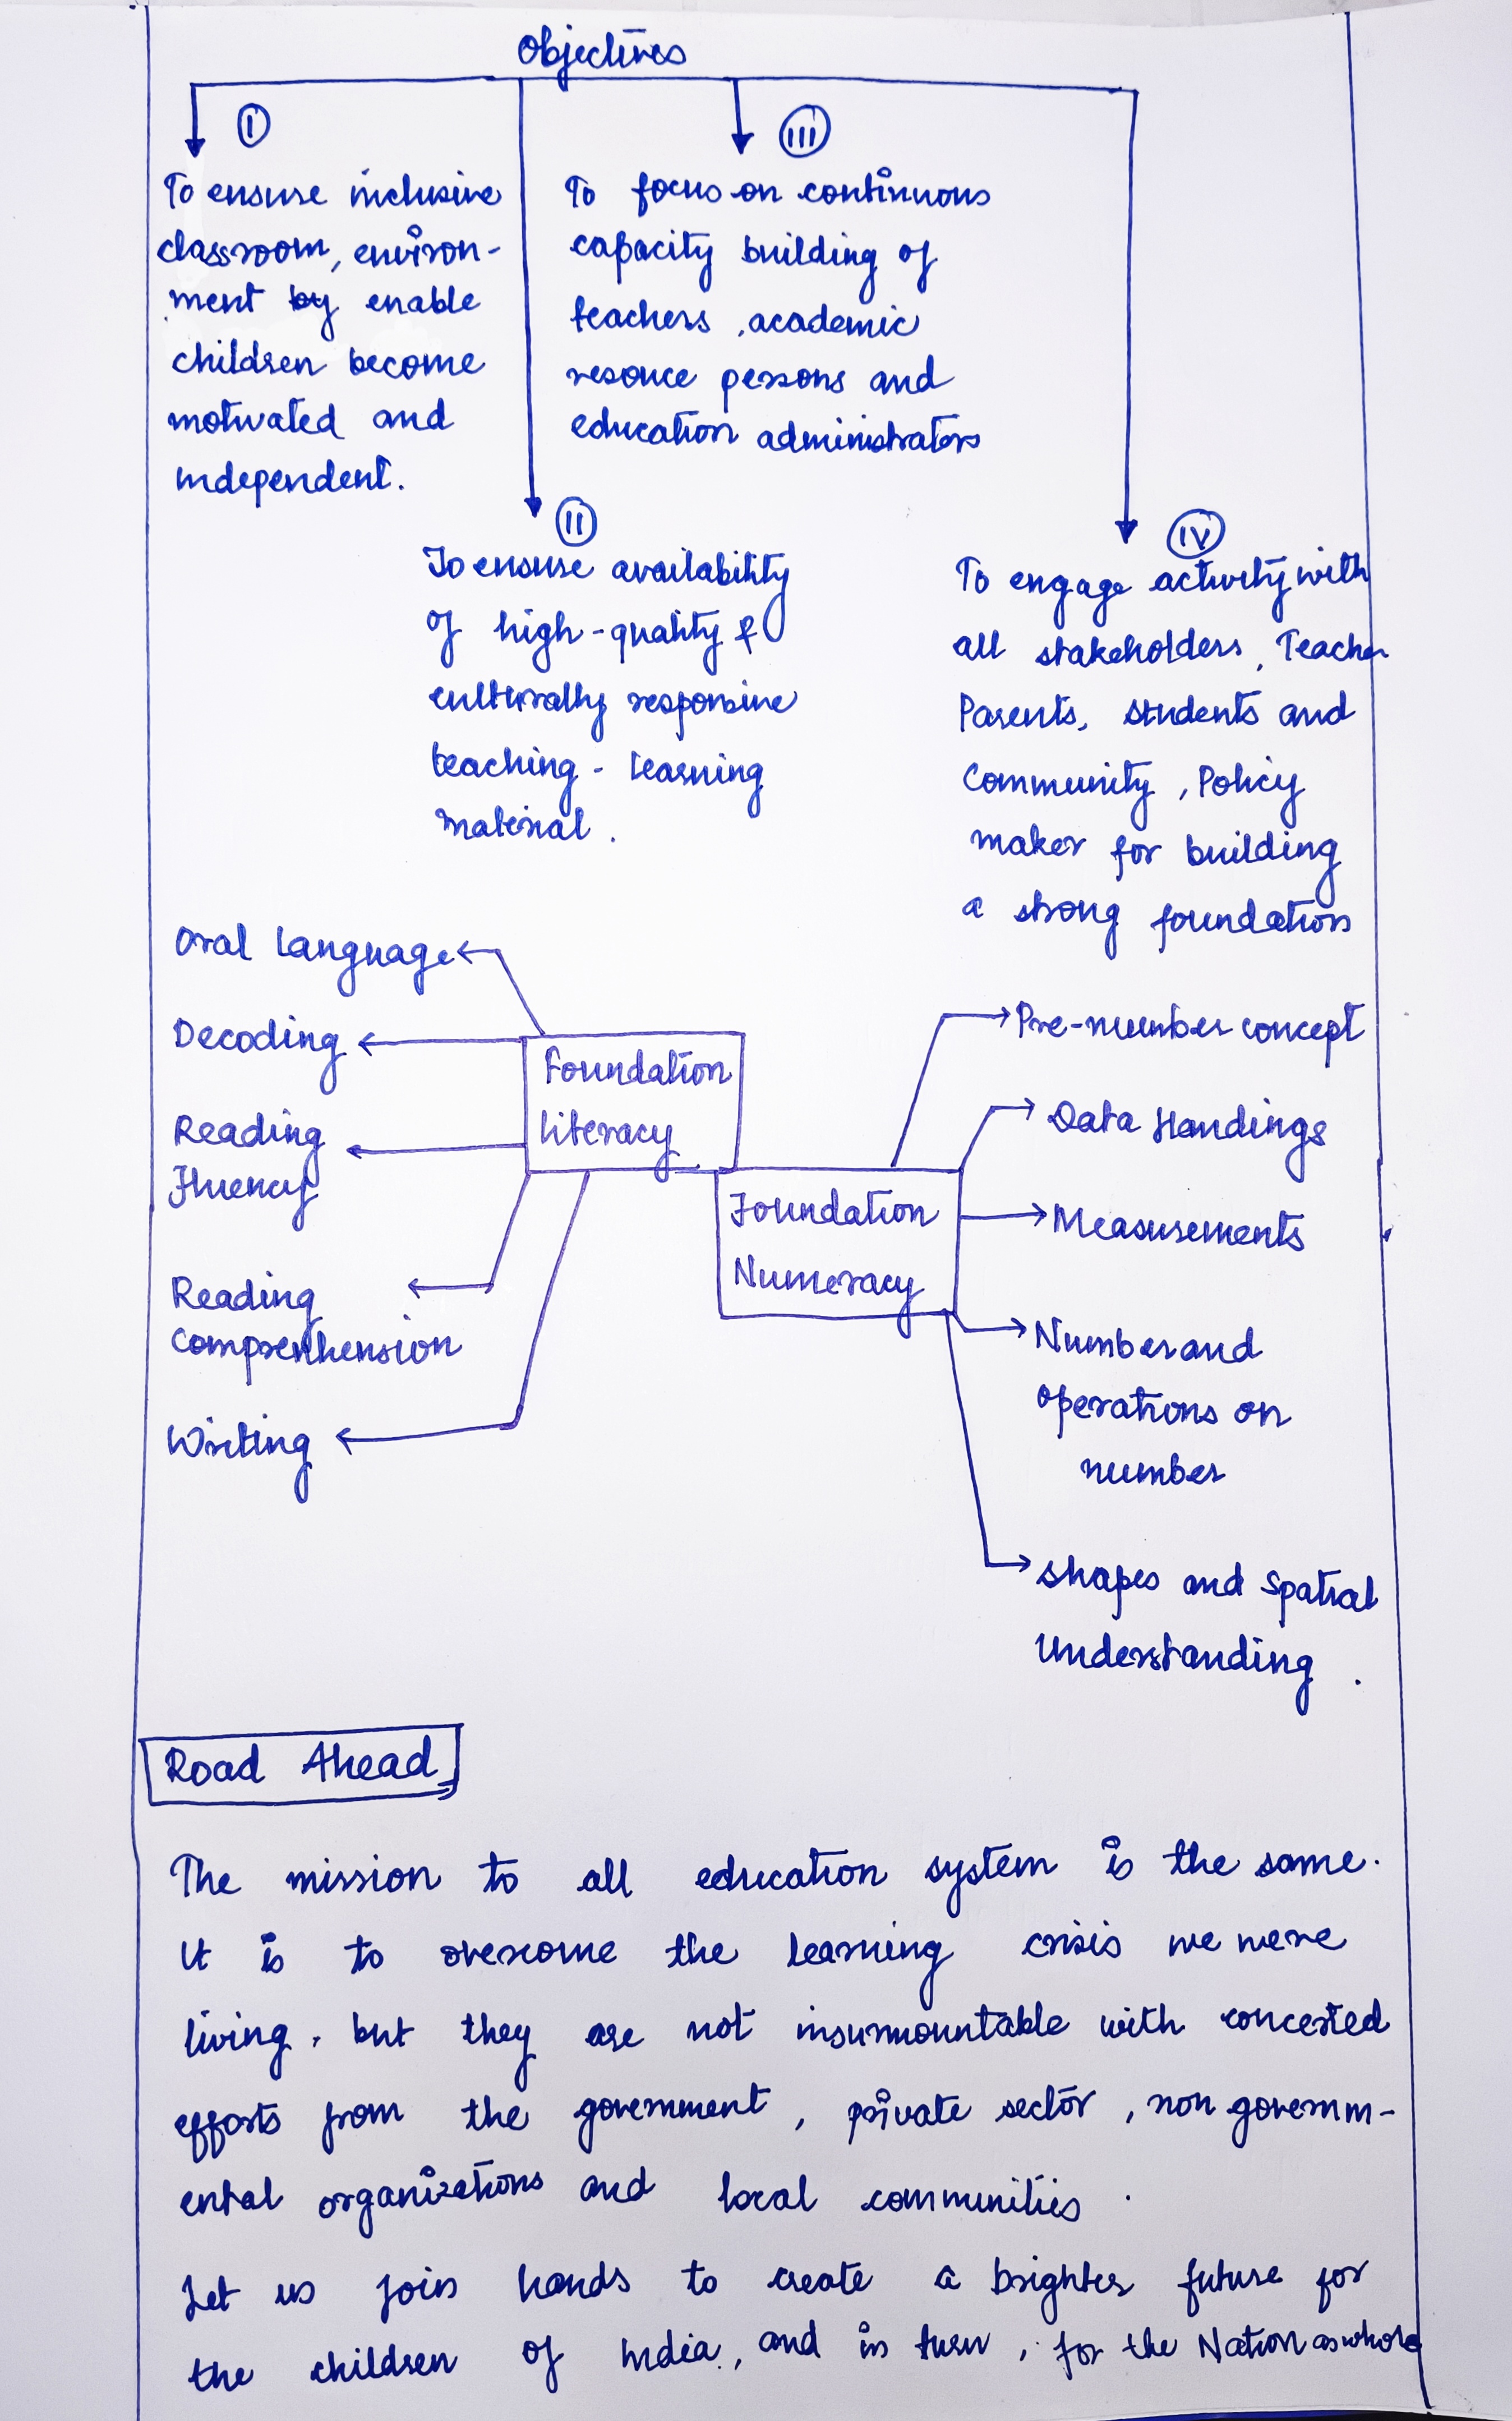 Objectives
I
To ensure inclusive
classroom, environ-
ment by enable
children become
motivated and
independent.
II
To ensure availability
of high-quality &
culturally responsive
teaching - learning
material.
III
To focus on continuous
capacity building of
teachers, academic
resouce persons and
education administrators
IV
To engage activity with
all stakeholders, Teacher
Parents, students and
Community, Policy
maker for building
a strong foundation
Foundation
literacy
Oral language
Decoding
Reading
Fluency
Reading
Comprenhension
Writing
Foundation
Numeracy
Pre-number concept
Data Handings
Measurements
Number and
operations on
number
shapes and spatial
Understanding.
Road Ahead
The mission to all education system is the same.
It is to overcome the learning crisis we were
living, but they are not insurmountable with concerted
efforts from the government, private sector, non governm-
ental organizations and local communities.
Let us join hands to create a brighter future for
the children of India, and in turn, for the Nation as whole